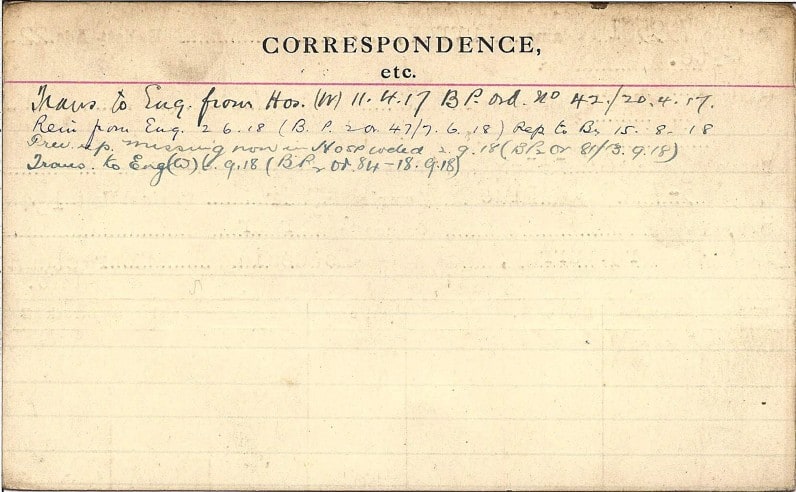 CORRESPONDENCE,
etc.
Trans to Eng. from Hos. (W) 11.4.17 B.P. ord. No 42./20.4.17.
Rein from Eng. 2 6.18 (B.P. 2 or 47/7.6.18) Rep to Bn 15.8.18
Prev. rep. missing now in Hosp wded 2.9.18 (BP2 Or 81/13.9.18)
Trans. to Eng (W) 6.9.18 (BP2 Or 84-18.9.18)